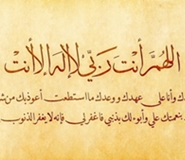 اللهم أنت ربي لا إله إلا أنت
دك وأنا على عهدك ووعدك ما استطعت أعوذ بك من ش
بنعمتك علي وأبوء لك بذنبي فاغفر لي فإنه لا يغفر الذنوب